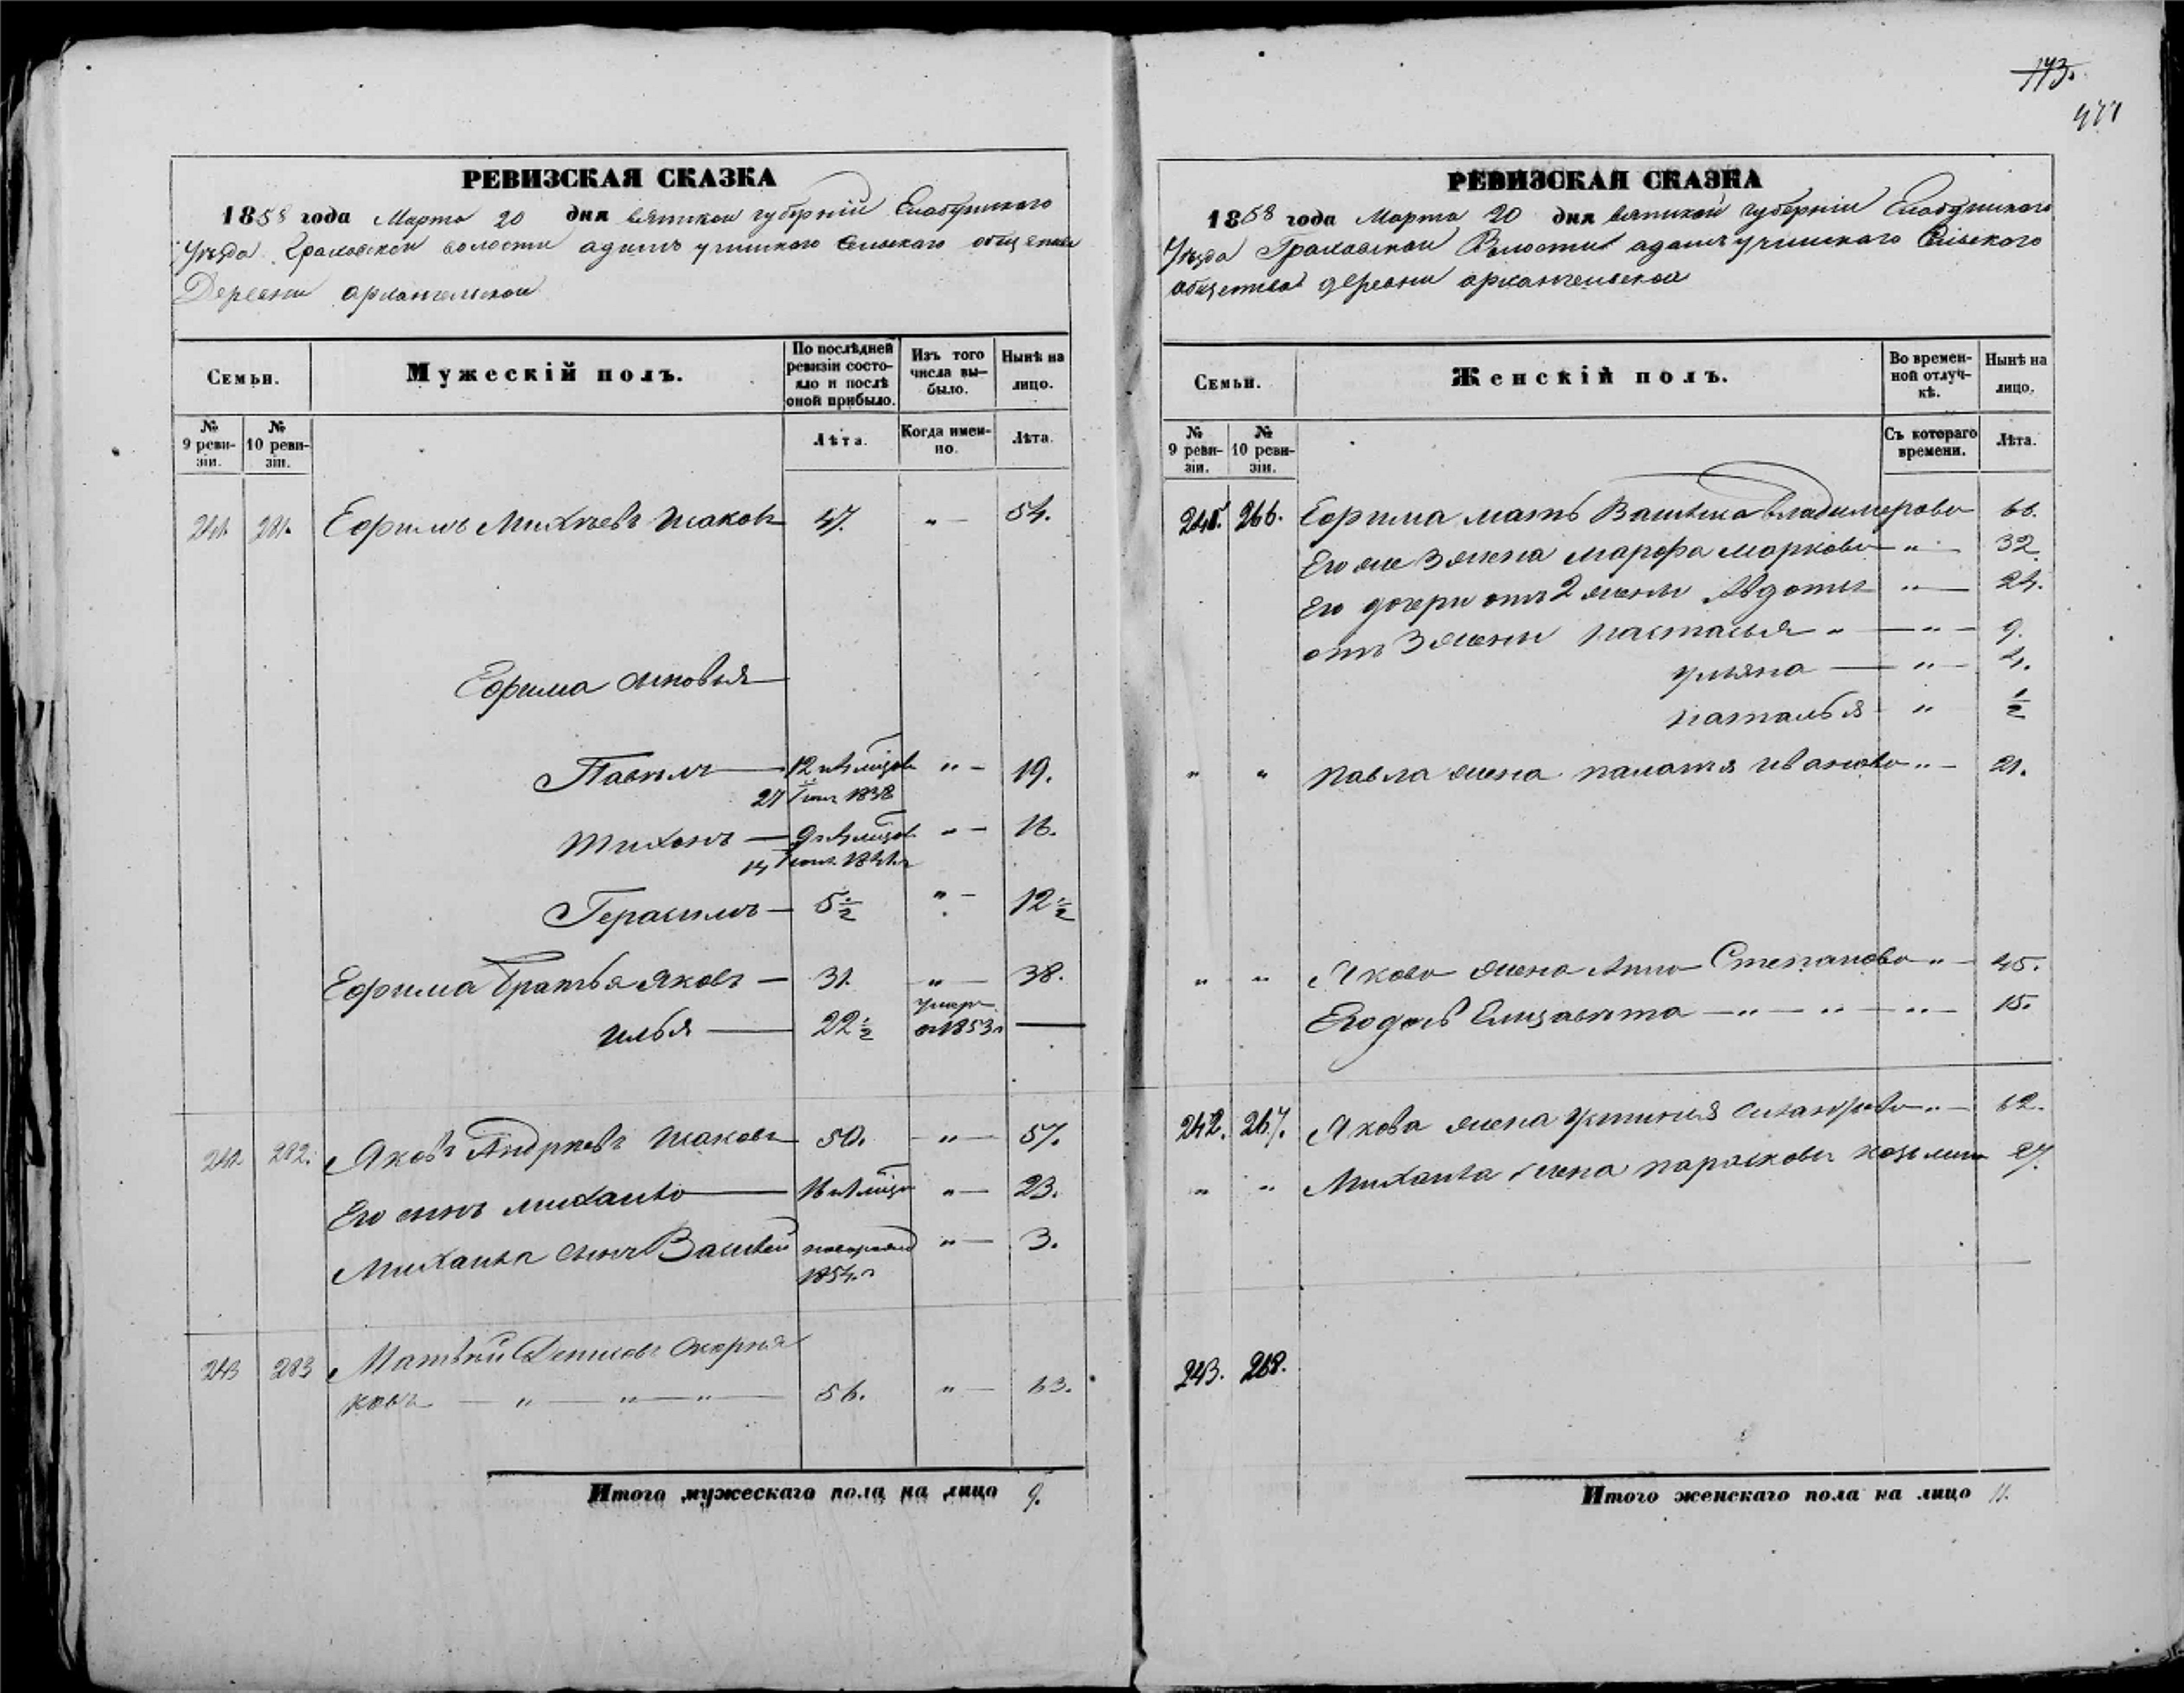 173.
471
РЕВИЗСКАЯ СКАЗКА
1858 года Марта 20 дня вятской губерніи Елабужскаго
Уѣзда Граховской волости адамъ учинскаго Сельскаго общества
Деревни архангельской
Семьи.
Мужескій полъ.
По послѣдней ревизіи состояло и послѣ оной прибыло.
Изъ того числа выбыло.
Нынѣ на лицо.
№ 9 ревизіи.
№ 10 ревизіи.
Лѣта.
Когда именно.
Лѣта.
241. 281. Ефимъ Михѣевъ 47. " 54.
Ефима сыновья
Павелъ 12 " 19.
27 1838
Тихонъ 9 " 16.
14
Герасимъ 5 1/2 " 12 1/2
Ефима братья Яковъ 31. " 38.
Илья 22 1/2 умеръ въ 1853 г
282. Яковъ Андреевъ 50. " 57.
Его сынъ Михаило 16 " 23.
Михаила сынъ Василей новорожд " 3.
1854 г
243 283 Матвѣй Денисовъ Скорня
ковъ " " " 56. " 63.
Итого мужескаго пола на лицо 9.
РЕВИЗСКАЯ СКАЗКА
1858 года Марта 20 дня вятской губерніи Елабужскаго
Уѣзда Граховской Волости адамъ учинскаго Сельскаго
общества деревни архангельской
Семьи.
Женскій полъ.
Во временной отлучкѣ.
Нынѣ на лицо.
№ 9 ревизіи.
№ 10 ревизіи.
Съ котораго времени.
Лѣта.
241. 266. Ефима мать Василиса владимерова 66.
Его же 3 жена марфа маркова " 32.
Его дочери отъ 2 жены Авдотья " 24.
отъ 3 жены настасья " " 9.
ульяна " 4.
наталья " 1/2
" " Павла жена палагея иванова " 21.
" " Якова жена Анна Степанова " 45.
Его дочь Елизавета " " " 15.
242. 267. Якова жена устинья " 62.
" " Михаила жена парасковья козьмина 27.
243. 268.
Итого женскаго пола на лицо 11.